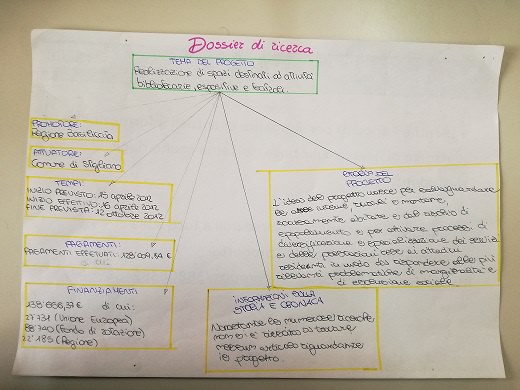 Dossier di ricerca
TEMA DEL PROGETTO
Realizzazione di spazi destinati ad attività
bibliotecarie, espositive e teatrali.
PROMOTORE:
Regione Basilicata
ATTUATORE:
Comune di Stigliano
TEMPI:
INIZIO PREVISTO: 15 aprile 2012
INIZIO EFFETTIVO: 16 aprile 2012
FINE PREVISTA: 12 ottobre 2012
PAGAMENTI:
PAGAMENTI EFFETUATI: 128 009,84 €
FINANZIAMENTI
138 656,37 € di cui:
27 731 (Unione Europea)
88 740 (Fondo di rotazione)
22 185 (Regione)
STORIA DEL
PROGETTO
L'idea del progetto nasce per salvaguardare
le aree interne rurali e montane,
scarsamente abitate e dal rischio di
spopolamento e per attivare processi di
diversificazione e specializzazione dei servizi
e delle prestazioni rese ai cittadini
residenti in modo da rispondere alle più
rilevanti problematiche di marginalità e
di esclusione sociale
INFORMAZIONI SULLA
STORIA E CRONACA
Nonostante le numerose ricerche,
non si è riuscito a trovare
nessun articolo riguardante
il progetto.